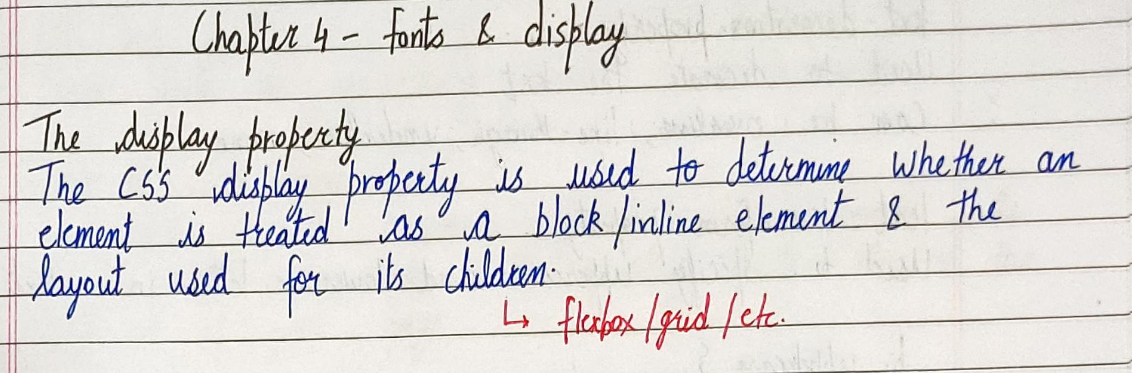 Chapter 4 - fonts & display
The display property
The CSS display property is used to determine whether an
element is treated as a block/inline element & the
layout used for its children.
↳ flexbox/grid/etc.